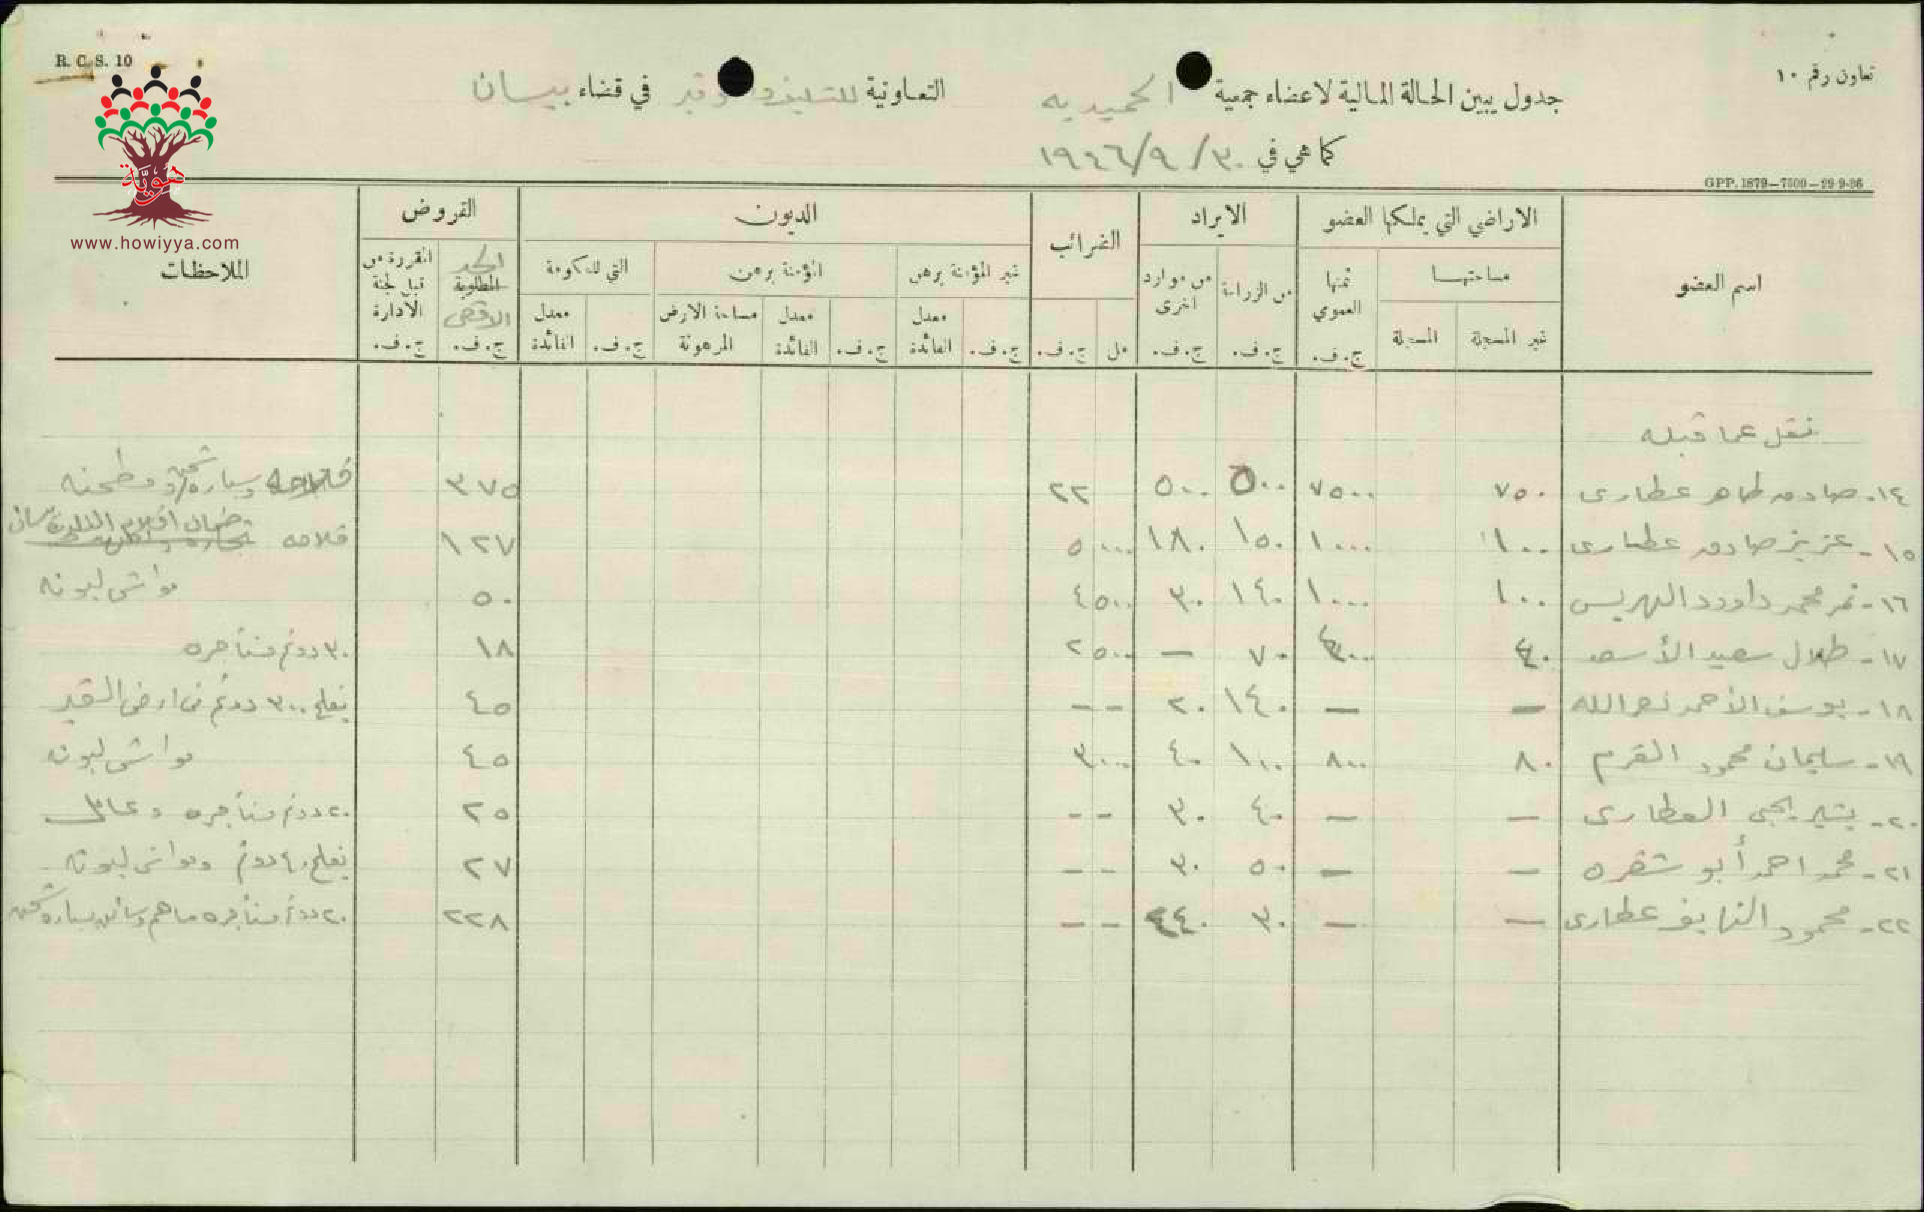 R. C. S. 10
تعاون رقم ١٠
جدول يبين الحالة المالية لاعضاء جمعية الحميديه التعاونية للتسليف في قضاء بيسان
كما هي في ٣٠/٩/١٩٤٦
GPP. 1879—7500—29-9-36
هوية
www.howiyya.com
اسم العضو الاراضي التي يملكها العضو الايراد الضرائب الديون القروض الملاحظات
مساحتها ثمنها العمومي من الزراعة من موارد اخرى غير المؤمنة برهن المؤمنة برهن التي للحكومة الحد المطلوبة الاقصى المقررة من قبل لجنة الادارة
غير المسجلة المسجلة ج.ف. ج.ف. ج.ف. مل ج.ف. ج.ف. معدل الفائدة ج.ف. معدل الفائدة مساحة الارض المرهونة ج.ف. معدل الفائدة ج.ف. ج.ف.
نقل عما قبله
١٤- صادق طاهر عطارى ٧٥٠ ٧٥٠٠ ٥٠٠ ٥٠٠ ٢٢ ٣٧٥ فلاحه وسيارة شحن ومطحنه
١٥- عزيز صادق عطارى ١٠٠ ١٠٠٠ ١٥٠ ١٨٠ ٥٠٠٠ ١٢٧ فلاحه
١٦- نمر محمد داوود الهريس ١٠٠ ١٠٠٠ ١٤٠ ٣٠ ٤٥٠٠ ٥٠ مواشي لبونه
١٧- طلال سعيد الأسعد ٤٠ ٤٠٠ ٧٠ — ٢٥٠٠ ١٨ ٣٠ دونم مستأجره
١٨- يوسف الأحمد نصرالله — — ١٤٠ ٢٠ - - ٤٥ يفلح ٣٠٠ دونم في ارض
١٩- سليمان محمود القرم ٨٠ ٨٠٠ ١٠٠ ٤٠ ٣٠٠٠ ٤٥ مواشي لبونه
٢٠- بشير يحيى العطارى — — ٤٠ ٣٠ - - ٢٥ ٢٠ دونم مستأجره و
٢١- محمد احمد أبو شقره — — ٥٠ ٣٠ - - ٢٧ يفلح ٤٠ دونم ومواشي لبونه
٢٢- محمود النايف عطارى — — ٣٠ ٤٤٠ - - ٢٢٨ ٢٠ دونم مستأجره